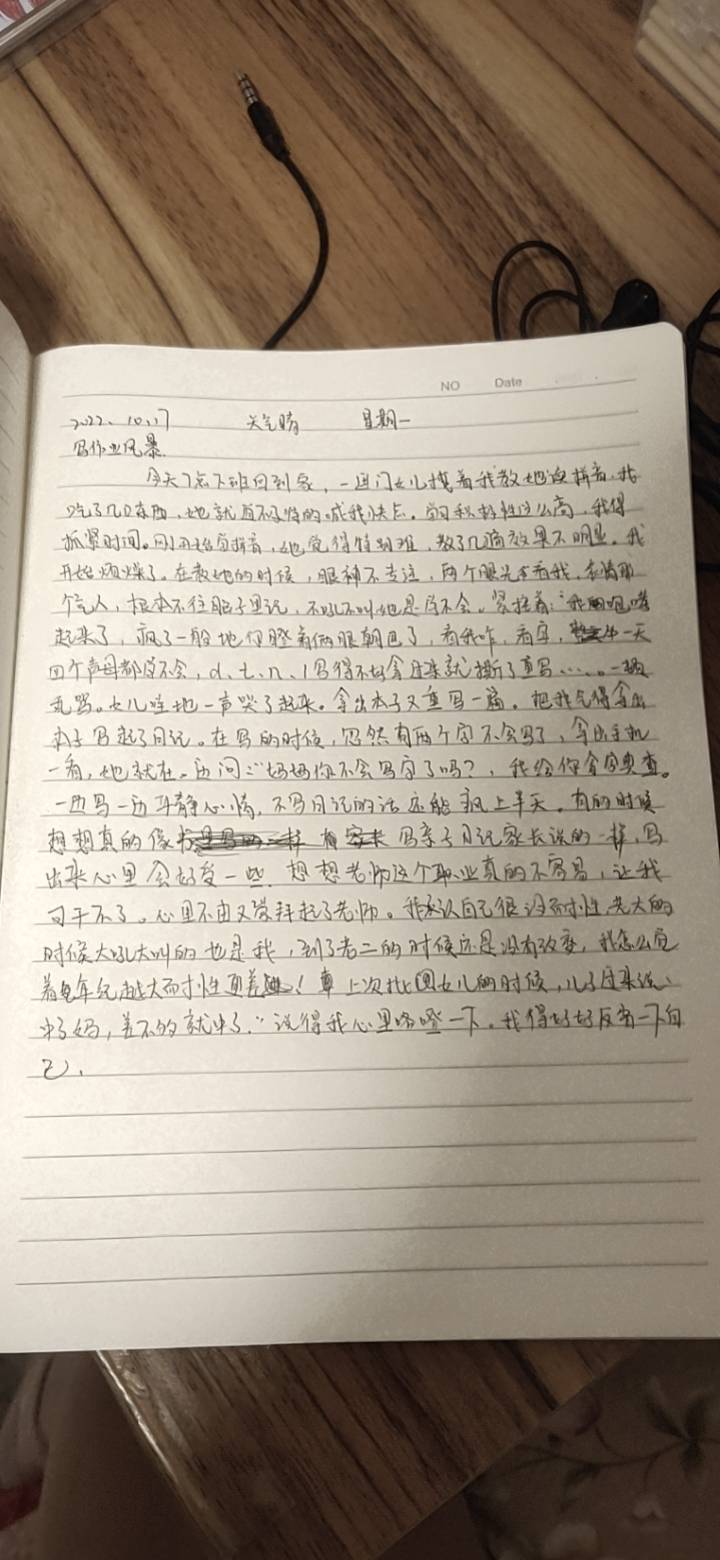 NO Date
2022、10.17 天气晴 星期一
写作业风暴
今天7点下班回到家，一进门女儿搂着我教她读拼音，我
吃了几口东西，她就直不的催我快点。积极性这么高，我得
抓紧时间。刚开始写拼音，她觉得特别难，教了几遍效果不明显。我
开始烦燥了。在教她的时候，眼神不专注，两个眼光去看我，走满那
个气人，根本不往脑子里记，不吼不叫她是学不会。紧接着：我咆哮
起来了，疯了一般地 瞪着俩眼朝巴了，看我咋，看字，一天
四个声母都学不会，d、t、n、l写得不好拿过来就撕了重写……。一顿
乱骂。女儿哇地一声哭了起来。拿出本子又重写一篇。把我气得拿出
本子写起了日记。在写的时候，忽然有两个字不会写了，拿出手机
一看，她就在一边问：“妈妈你不会写字了吗？，我给你拿字典查。
一边写一边平静心情，不写日记的话还能疯上半天。有的时候
想想真的像 写亲子日记家长说的一样，写
出来心里会好受一些。想想老师这个职业真的不容易，让我
可干不了。心里不由又崇拜起了老师。我承认自己很没耐性，老大的
时候大吼大叫的也是我，到了老二的时候还是没有改变，我怎么觉
着年纪越大耐性更差！上次批女儿的时候，儿子过来说：
中了妈，差不多就中了.“说得我心里咯噔一下。我得好好反省一下自
己.